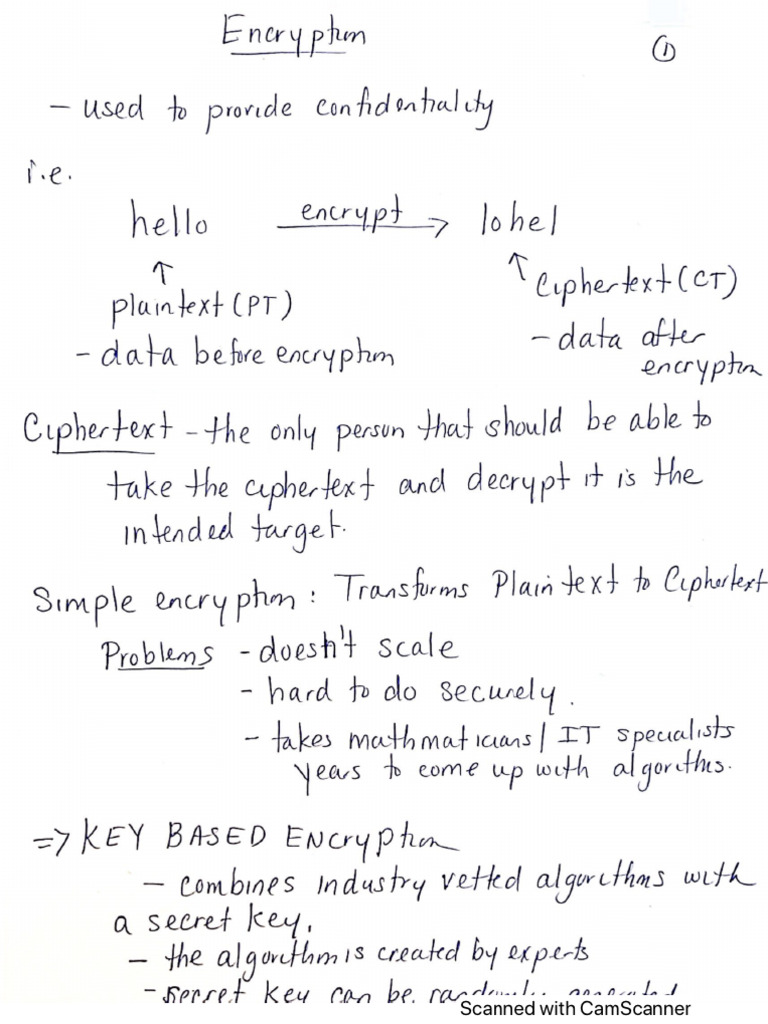 Encryption
①
- used to provide confidentiality
i.e.
hello encrypt → lohel
↑ ↑
plaintext (PT) Ciphertext (CT)
- data before encryption - data after
encryption
Ciphertext - the only person that should be able to
take the ciphertext and decrypt it is the
intended target.
Simple encryption : Transforms Plaintext to Ciphertext
Problems - doesn't scale
- hard to do securely.
- takes mathmaticians / IT specialists
years to come up with algorithms.
=> KEY BASED ENcryption
- combines industry vetted algorithms with
a secret key.
- the algorithm is created by experts
- secret key can be randomly generated
Scanned with CamScanner